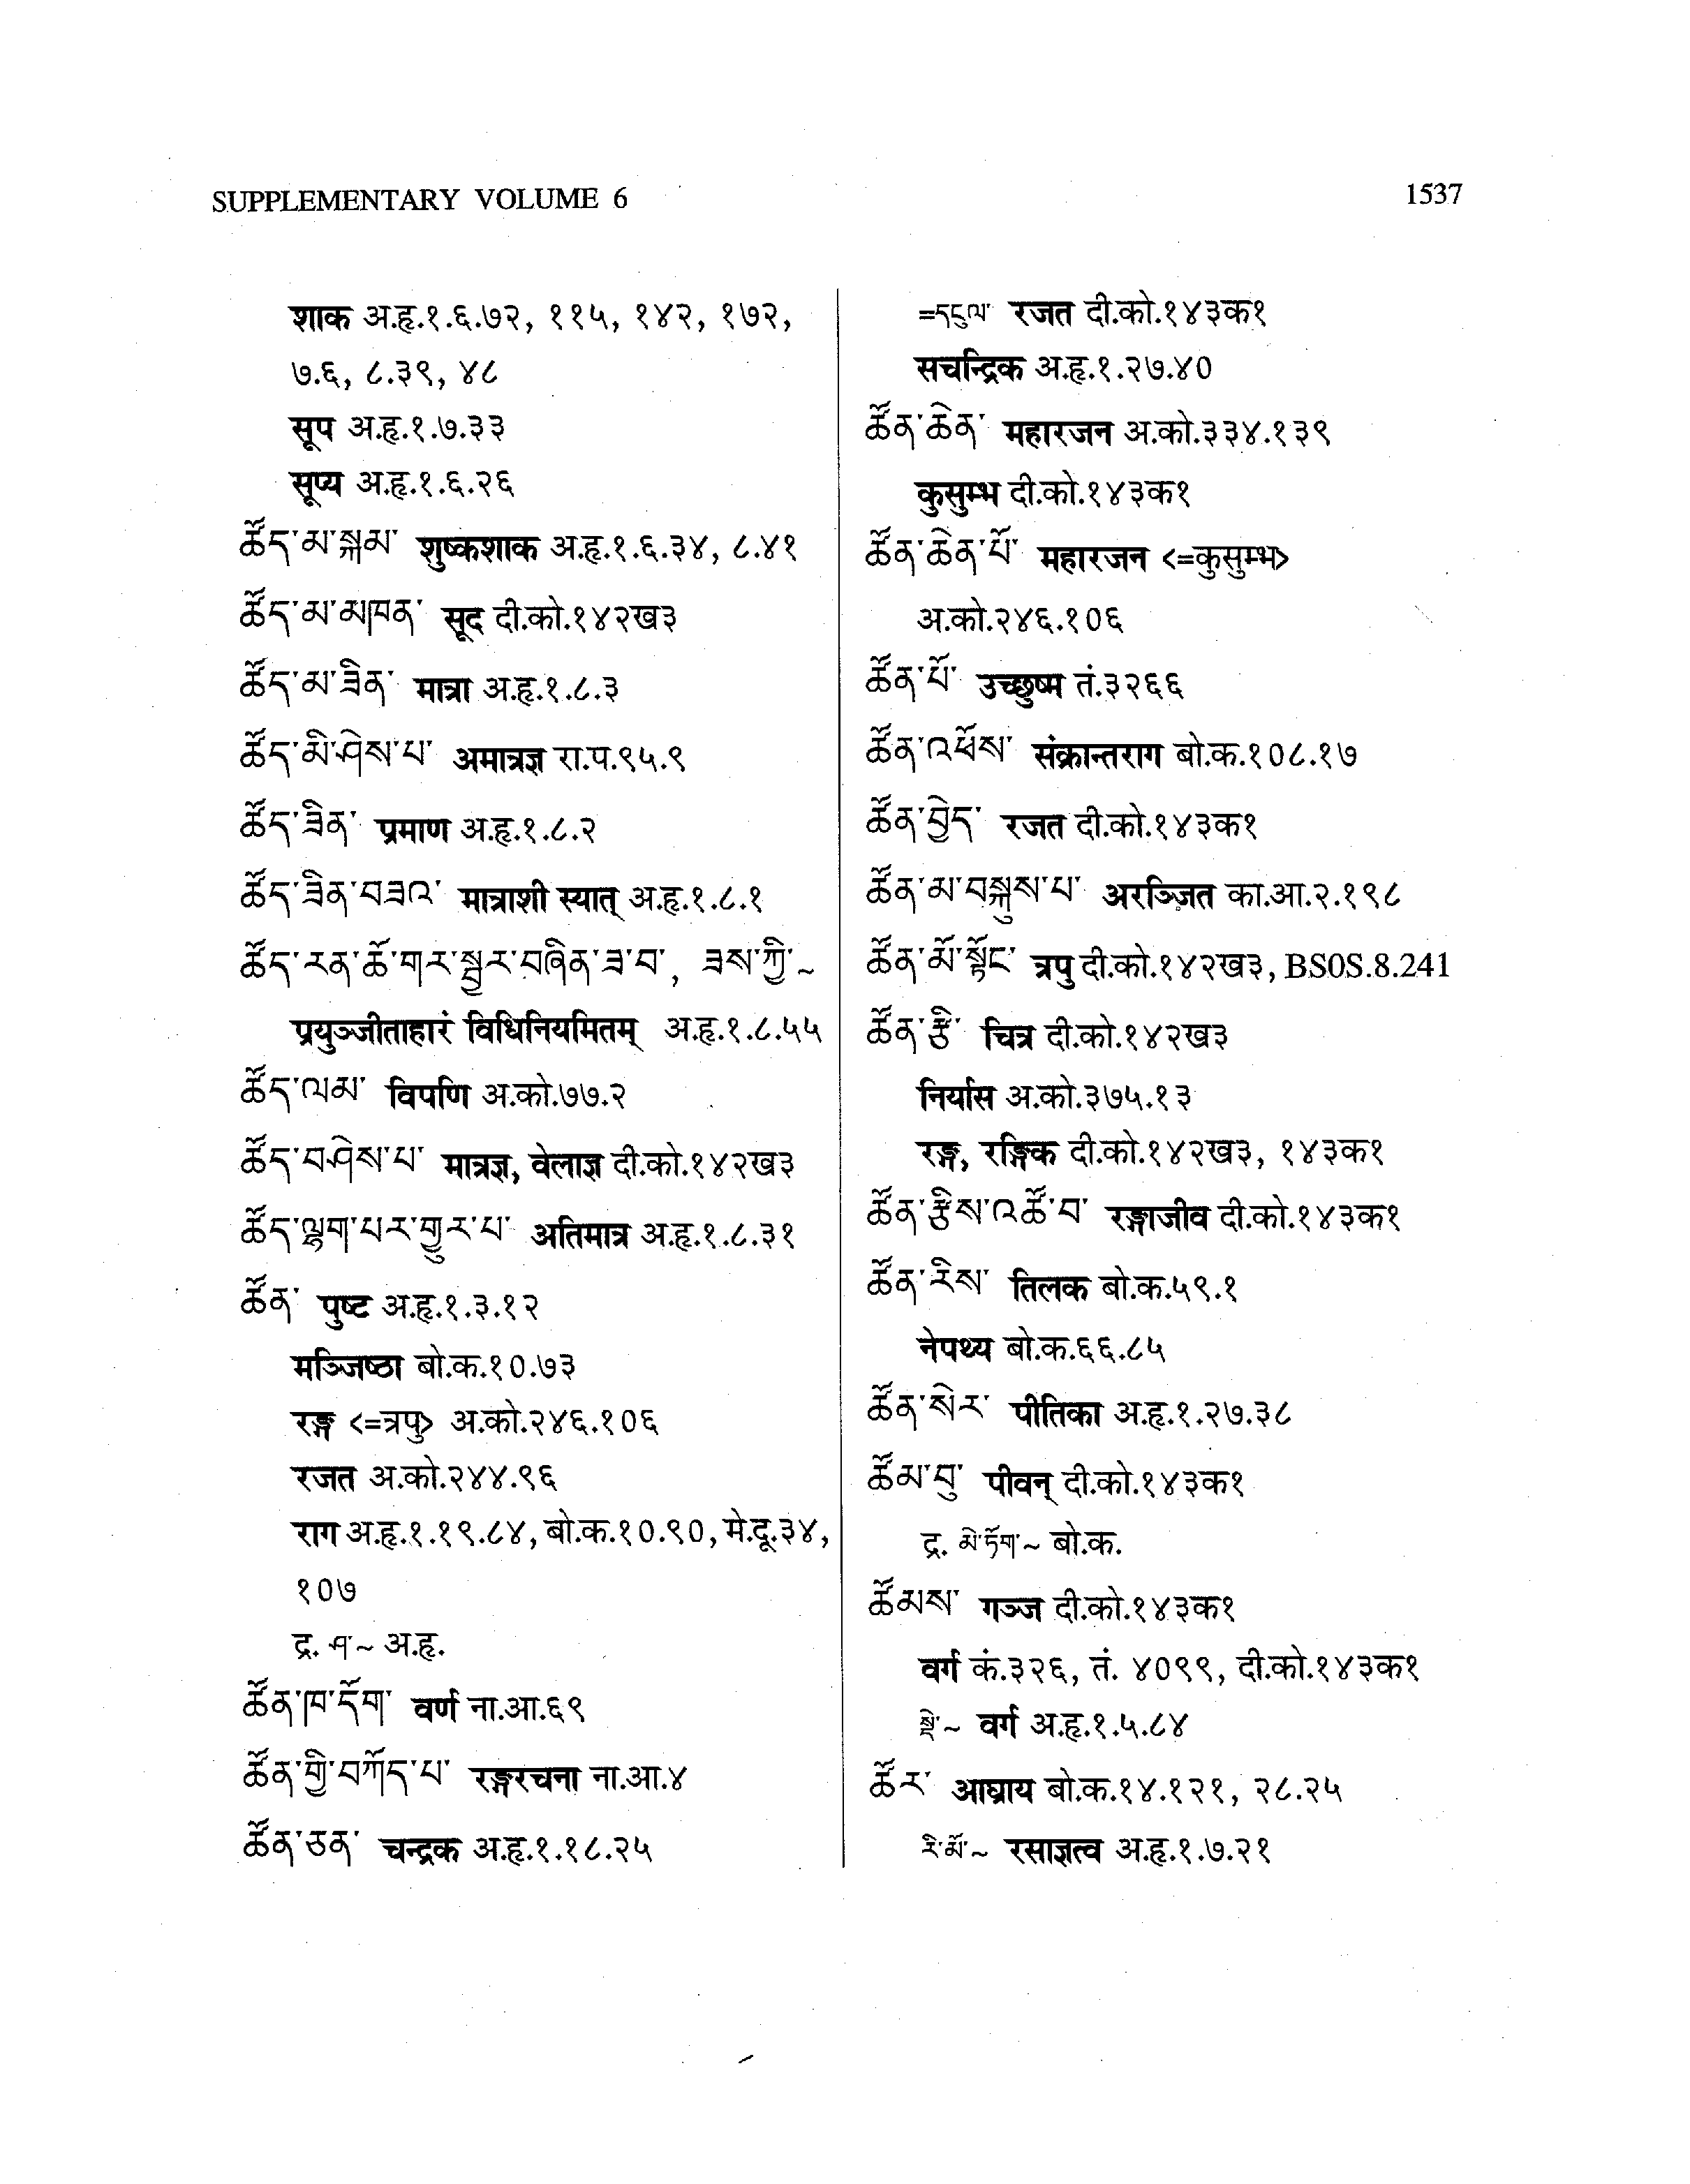 SUPPLEMENTARY VOLUME 6
1537
शाक अ.हृ.१.६.७२, ११५, १४२, १७२,
७.६, ८.३९, ४८
सूप अ.हृ.१.७.३३
सूप्य अ.हृ.१.६.२६
ཚོད་མ་སྐམ་ शुष्कशाक अ.हृ.१.६.३४, ८.४१
ཚོད་མ་མཁན་ सूद दी.को.१४२ख३
ཚོད་མ་ཟིན་ मात्रा अ.हृ.१.८.३
ཚོད་མི་ཤེས་པ་ अमात्रज्ञ रा.प.९५.९
ཚོད་ཟིན་ प्रमाण अ.हृ.१.८.२
ཚོད་ཟིན་བཟའ་ मात्राशी स्यात् अ.हृ.१.८.१
ཚོད་རན་ཆོ་གར་སྦྱར་བཞིན་ཟ་བ་, ཟས་ཀྱི་~
प्रयुञ्जीताहारं विधिनियमितम् अ.हृ.१.८.५५
ཚོད་ལམ་ विपणि अ.को.७७.२
ཚོད་བཤེས་པ་ मात्रज्ञ, वेलाज्ञ दी.को.१४२ख३
ཚོད་ལྷག་པར་གྱུར་པ་ अतिमात्र अ.हृ.१.८.३१
ཚོན་ पुष्ट अ.हृ.१.३.१२
मञ्जिष्ठा बो.क.१०.७३
रङ्ग <=त्रपु> अ.को.२४६.१०६
रजत अ.को.२४४.९६
राग अ.हृ.१.१९.८४, बो.क.१०.९०, मे.दू.३४,
१०७
द्र. ཤ་~ अ.हृ.
ཚོན་ཁ་དོག་ वर्ण ना.आ.६९
ཚོན་གྱི་བཀོད་པ་ रङ्गरचना ना.आ.४
ཚོན་ཅན་ चन्द्रक अ.हृ.१.१८.२५
=དངུལ་ रजत दी.को.१४३क१
सचन्द्रिक अ.हृ.१.२७.४०
ཚོན་ཆེན་ महारजन अ.को.३३४.१३९
कुसुम्भ दी.को.१४३क१
ཚོན་ཆེན་པོ་ महारजन <=कुसुम्भ>
अ.को.२४६.१०६
ཚོན་པོ་ उच्छुष्म तं.३२६६
ཚོན་འཕོས་ संक्रान्तराग बो.क.१०८.१७
ཚོན་བྱེད་ रजत दी.को.१४३क१
ཚོན་མ་བསྐུས་པ་ अरञ्जित का.आ.२.१९८
ཚོན་མོ་སྟོང་ त्रपु दी.को.१४२ख३, BSOS.8.241
ཚོན་རྩི་ चित्र दी.को.१४२ख३
निर्यास अ.को.३७५.१३
रङ्ग, रङ्गिक दी.को.१४२ख३, १४३क१
ཚོན་རྩིས་འཚོ་བ་ रङ्गाजीव दी.को.१४३क१
ཚོན་རིས་ तिलक बो.क.५९.१
नेपथ्य बो.क.६६.८५
ཚོན་སེར་ पीतिका अ.हृ.१.२७.३८
ཚོམ་བུ་ पीवन् दी.को.१४३क१
द्र. མེ་ཏོག་~ बो.क.
ཚོམས་ गञ्ज दी.को.१४३क१
वर्ग कं.३२६, तं. ४०९९, दी.को.१४३क१
སྡེ་~ वर्ग अ.हृ.१.५.८४
ཚོར་ आघ्राय बो.क.१४.१२१, २८.२५
རི་མོ་~ रसाज्ञत्व अ.हृ.१.७.२१